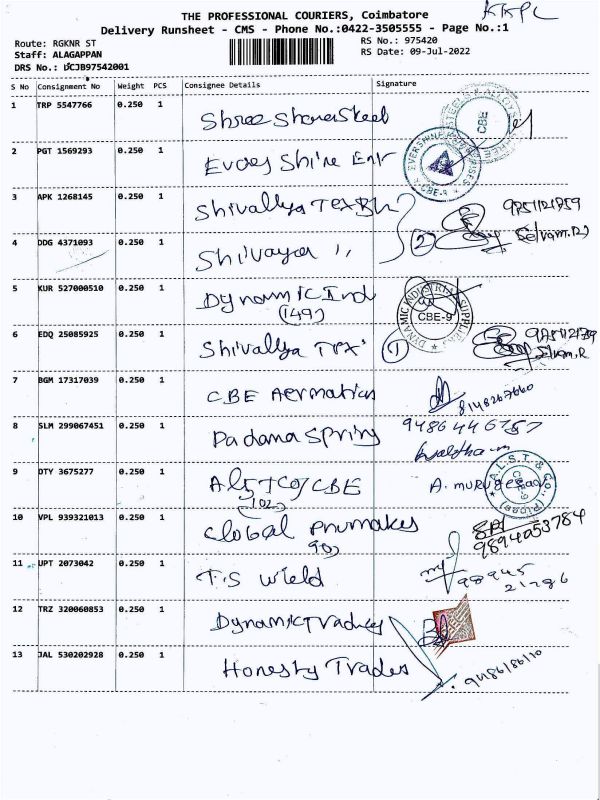 THE PROFESSIONAL COURIERS, Coimbatore
KKPL
Delivery Runsheet - CMS - Phone No.:0422-3505555 - Page No.:1
Route: RGKNR ST
RS No.: 975420
Staff: ALAGAPPAN
RS Date: 09-Jul-2022
DRS No.: DCJB97542001
S No Consignment No Weight PCS Consignee Details Signature
1 TRP 5547766 0.250 1 Shree Sharer Steel
CBE
2 PGT 1569293 0.250 1 Every Shine Ent
CBE-9
3 APK 1268145 0.250 1 Shivallya TEX
9751121759
4 DDG 4371093 0.250 1 Shivaya 11 2 Selvam.R
5 KUR 527000510 0.250 1 Dynamic Ind
(149)
DYNAMIC INDUSTRIAL SUPPLIERS CBE-9
6 EDQ 25085925 0.250 1 Shivallya TEX 1
Selvam.R
7 BGM 17317039 0.250 1 CBE Aermatics
8148267660
8 SLM 299067451 0.250 1 Padama Spring 9486446757
9 DTY 3675277 0.250 1 A. murugesan
(102)
A.L.S.T. & Co., (Pipes) CBE-9
10 VPL 939321013 0.250 1 Global Pnumakes
90
9894053784
11 UPT 2073042 0.250 1 T.S wield
98945
21786
12 TRZ 320060853 0.250 1 Dynamic Tradies
13 JAL 530202928 0.250 1 Honesty Trades
9486186110